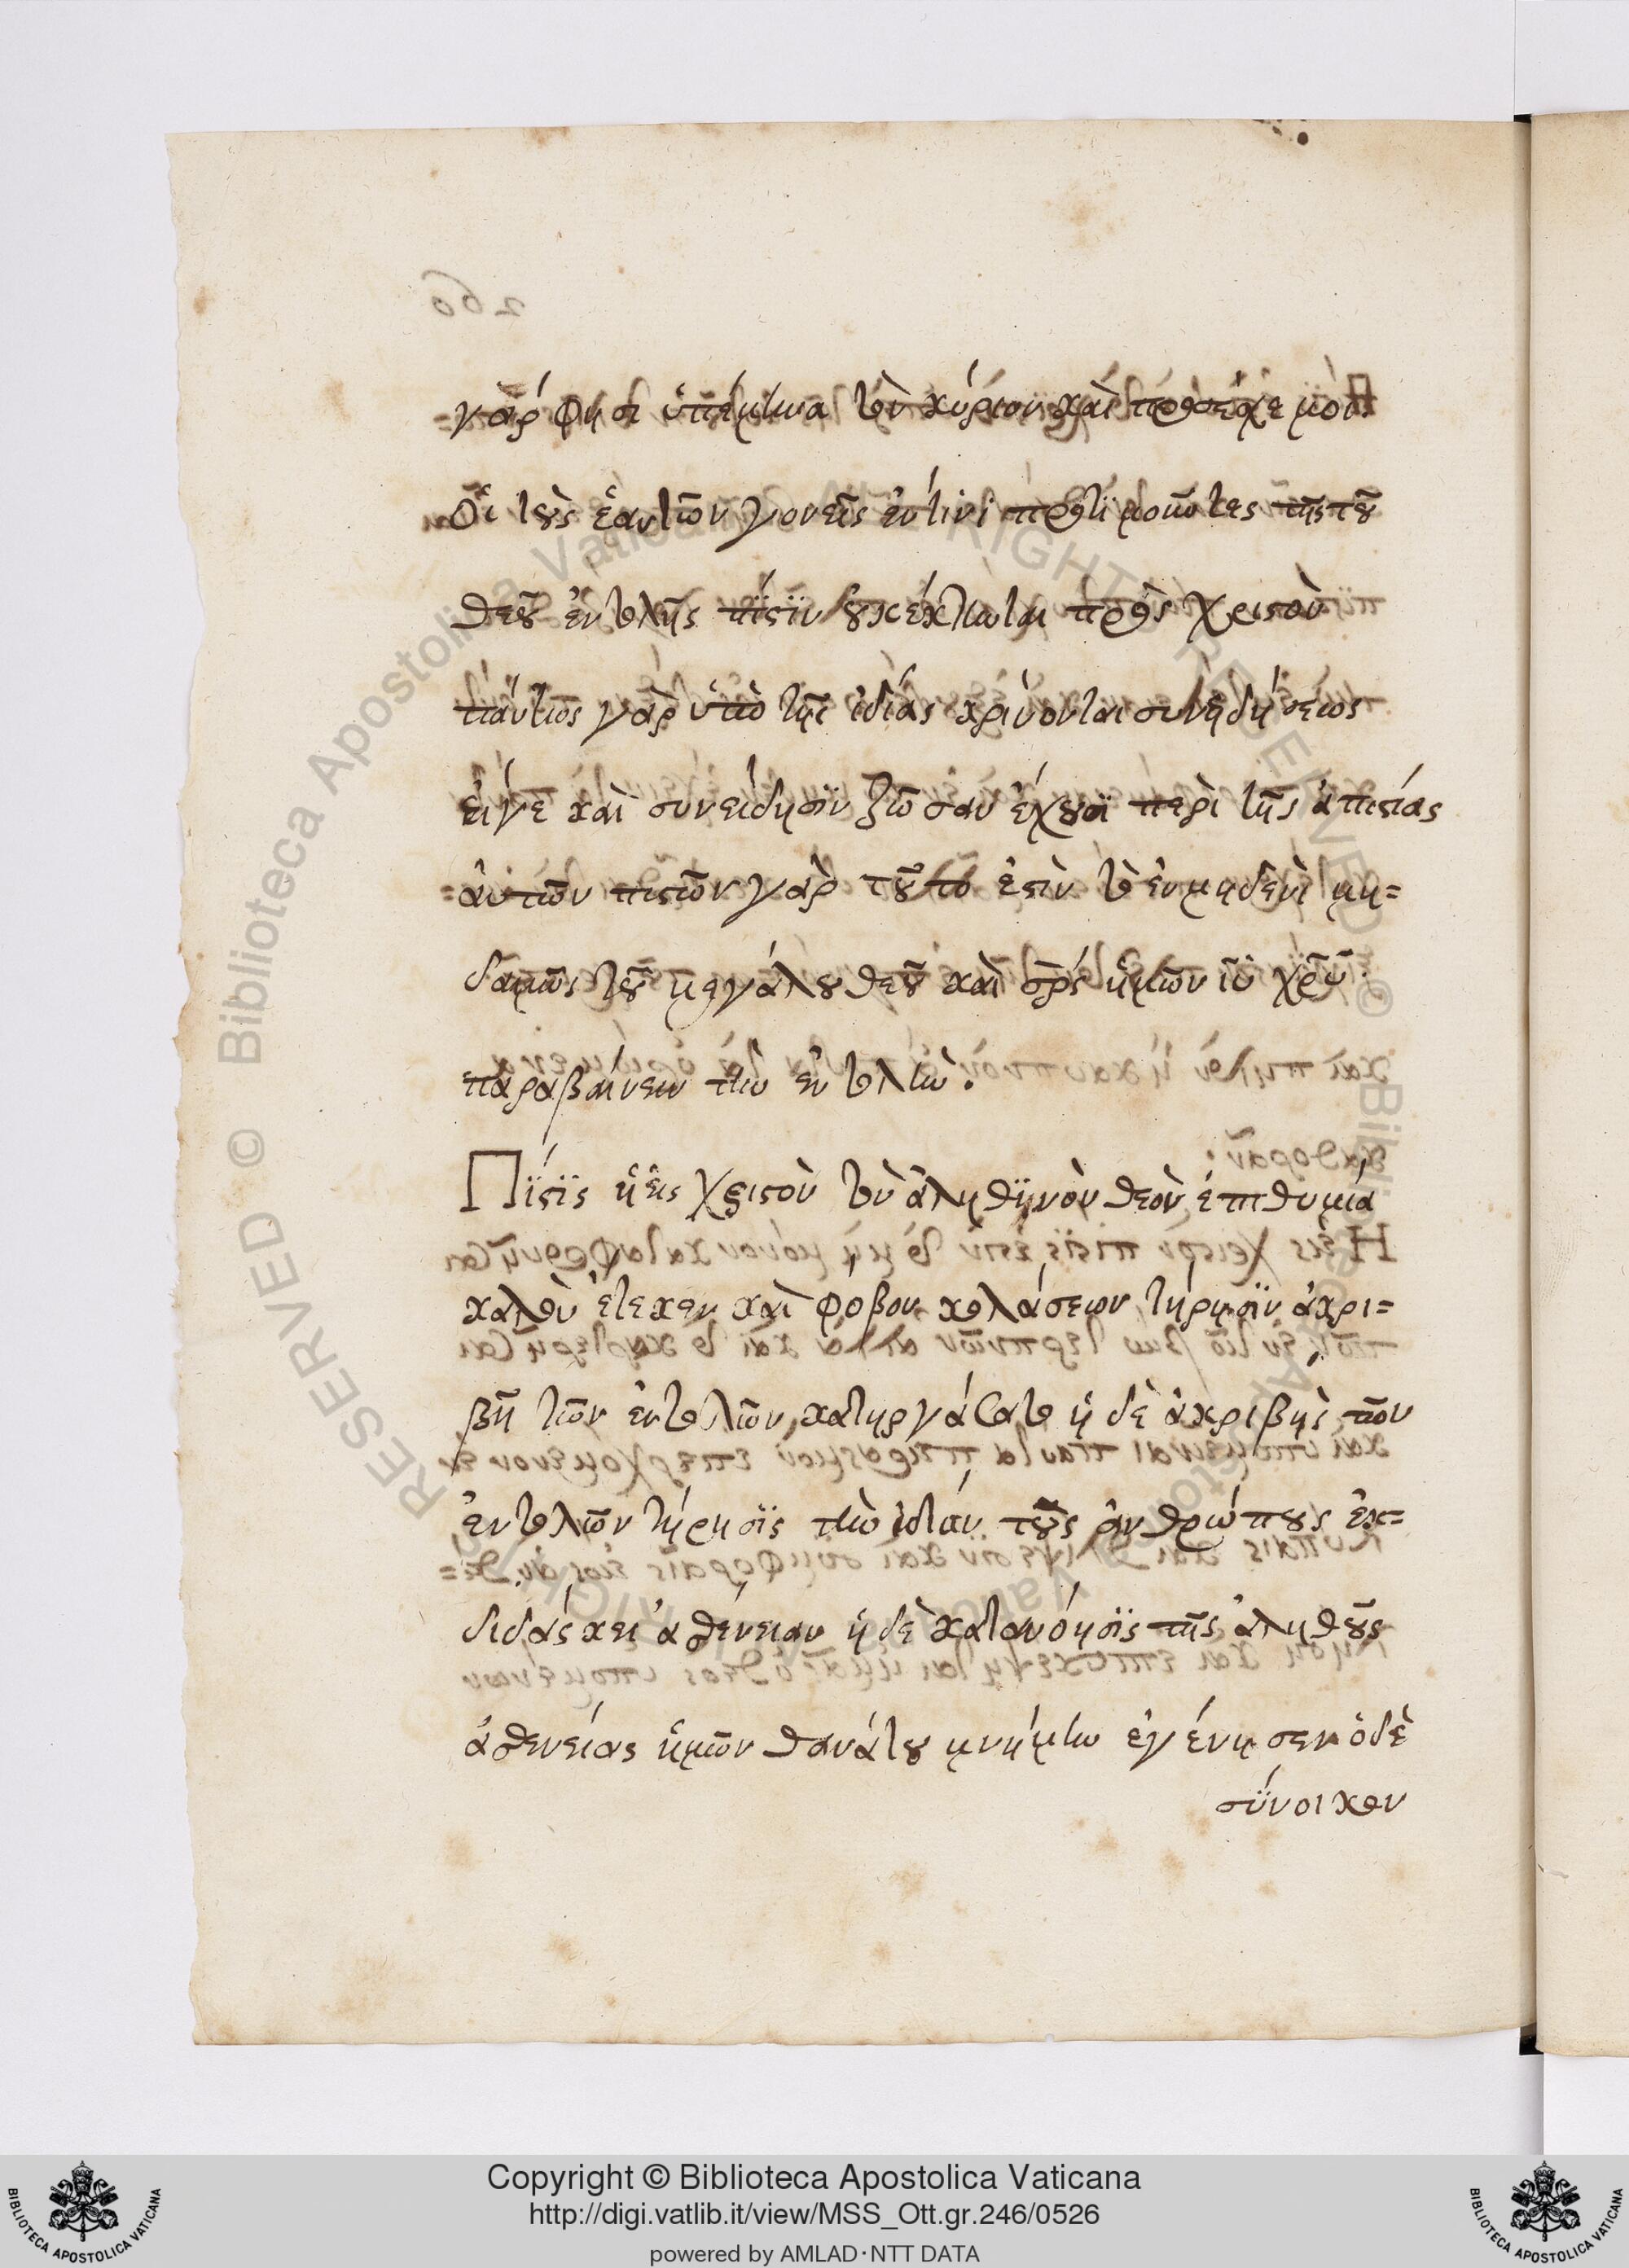 γὰρ φησι ὑπέμεινα τὸν κύριον καὶ προσέσχε μοι.
Οἱ τοὺς ἑαυτῶν γονεῖς ἐν τινὶ προτιμοῦντες τῆς τοῦ
θεοῦ ἐντολῆς πίστιν οὐκ έκτωται πρὸς χριστὸν
πάντως γὰρ ὑπὸ τῆς ἰδίας κρίνονται συνηδήσεως
εἴγε καὶ συνείδησιν ζῶσαν ἔχουσι περὶ τῆς ἀπιστίας
ἀυτῶν πιστῶν γὰρ τοῦτο ἐστὶν τὸ ἐν μηδενὶ μη=
δαμῶς τοῦ μεγάλου θεοῦ καὶ σρ̅ς ἡμῶν ιυ̅ χρ̅υ̅
παραβαίνειν τὴν ἐντολὴν.
Πίστις ἡ εἰς χριστὸν τὸν ἀληθϊνὸν θεὸν ἐπιθυμία
καλὸν ἔτεκεν καὶ φόβον κολάσεων τήρησϊν ἀκρι=
βῆ τῶν ἐντολῶν κατηργάσατο ἡ δὲ ἀκριβὴς τῶν
ἐντολῶν τήρησϊς τὴν ἰδίαν τοὺς ἀνθρώπους ἐκ=
διδάσκει ἀσθένειαν ἡ δὲ κατανόησϊς τῆς ἀληθοῦς
ἀσθενείας ἡμῶν θανάτου μνήμην ἐγέννησεν ὁ δὲ
σύνοικον
Copyright © Biblioteca Apostolica Vaticana
http://digi.vatlib.it/view/MSS_Ott.gr.246/0526
powered by AMLAD·NTT DATA
BIBLIOTECA APOSTOLICA VATICANA
BIBLIOTECA APOSTOLICA VATICANA